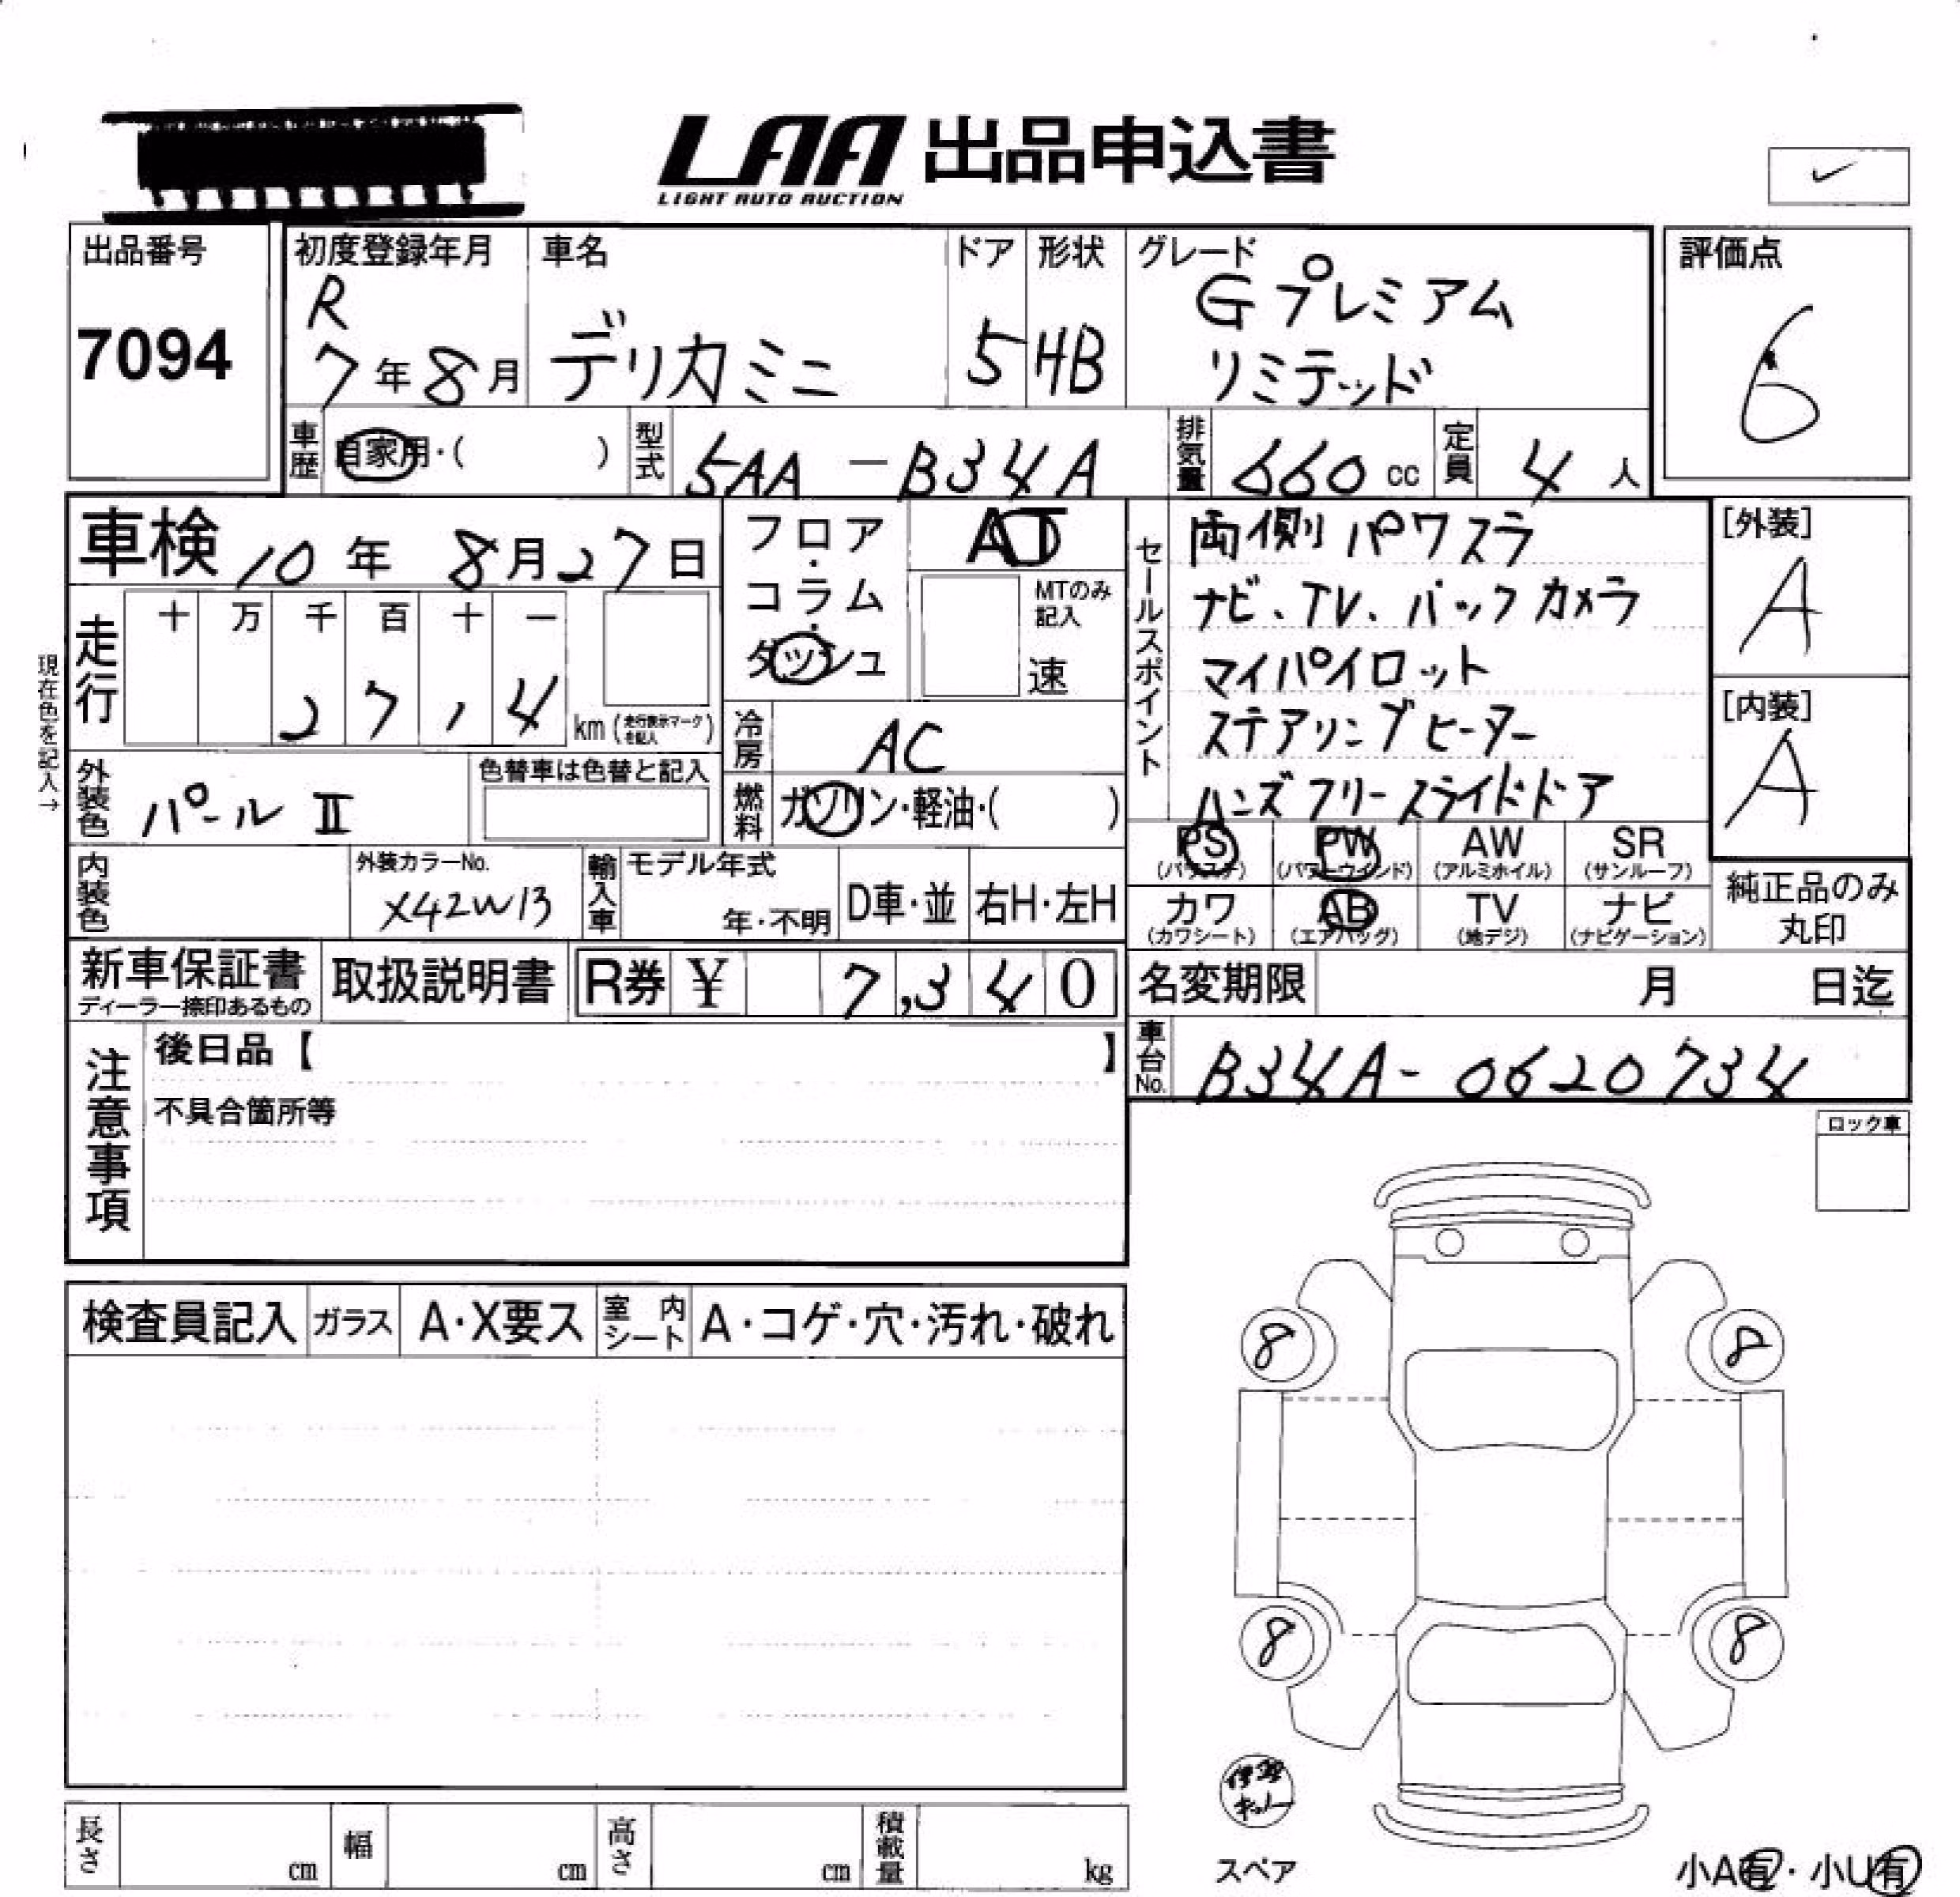 LAA 出品申込書
LIGHT AUTO AUCTION
出品番号
7094
初度登録年月
R
7年8月
車名
デリカミニ
ドア
5
形状
HB
グレード
Gプレミアム
リミテッド
評価点
6
車歴
自家用・( )
型式
5AA-B34A
排気量
660 cc
定員
4人
車検 10年 8月27日
走行
十 万 千 百 十 一
27,4
km (走行表示マークを記入)
現在色を記入→
外装色
パールⅡ
色替車は色替と記入
内装色
外装カラーNo.
X42W13
輸入車
モデル年式
年・不明
D車・並
右H・左H
フロア・
コラム・
ダッシュ
AT
MTのみ
記入
速
冷房
AC
燃料
ガソリン・軽油・( )
セールスポイント
両側パワスラ
ナビ、TV、バックカメラ
マイパイロット
ステアリングヒーター
ハンズフリースライドドア
[外装]
A
[内装]
A
PS AW SR
PW
(パワステ) (パワーウインド) (アルミホイル) (サンルーフ)
カワ AB TV ナビ
(カワシート) (エアバッグ) (地デジ) (ナビゲーション)
純正品のみ
丸印
新車保証書
ディーラー捺印あるもの
取扱説明書
R券 ¥ 7,340
名変期限 月 日迄
車台No.
B34A-0620734
注意事項
後日品【 】
不具合箇所等
ロック車
検査員記入
ガラス
A・X要ス
室内シート
A・コゲ・穴・汚れ・破れ
8 8
8 8
スペア
小A有・小U有
長さ cm
幅 cm
高さ cm
積載量 kg